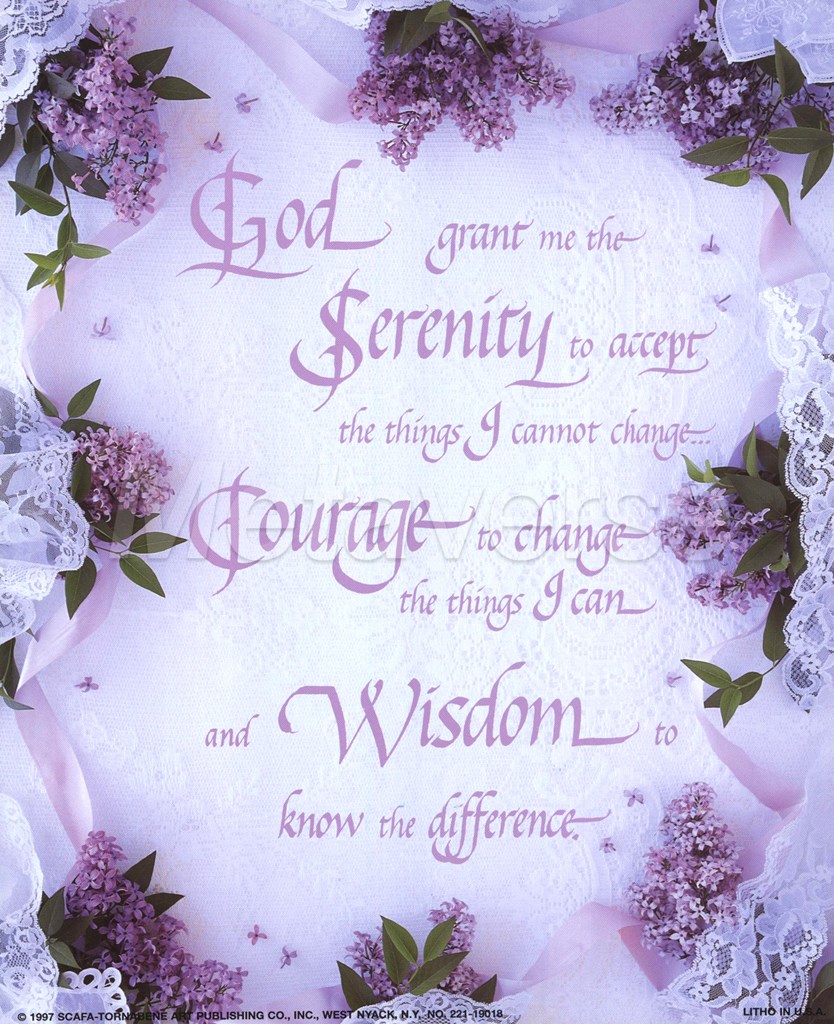 God grant me the
Serenity to accept
the things I cannot change...
Courage to change
the things I can
and Wisdom to
know the difference.
Metaverse
© 1997 SCAFA-TORNABENE ART PUBLISHING CO., INC., WEST NYACK, N.Y., NO. 221-19018.
LITHO IN U.S.A.